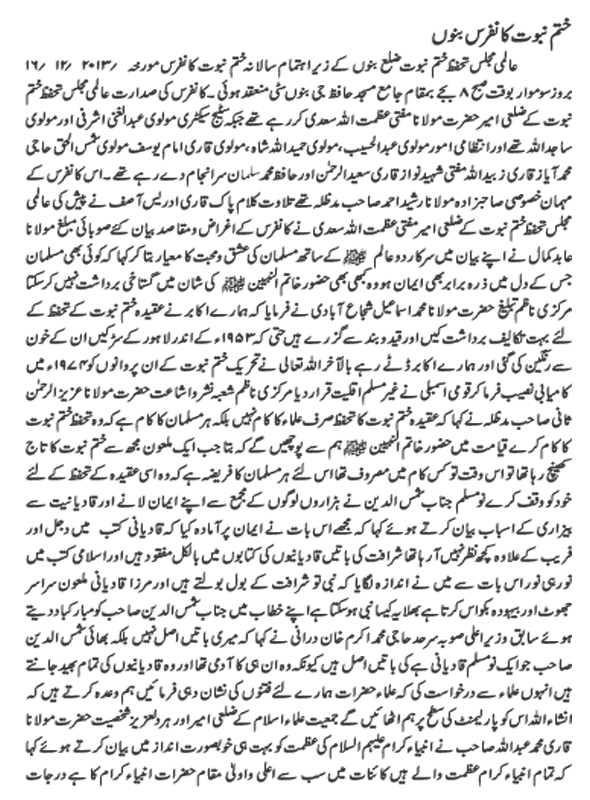 ختم نبوت کانفرس بنوں
عالمی مجلس تحفظ ختم نبوت ضلع بنوں کے زیر اہتمام سالانہ ختم نبوت کانفرس مورخہ /۲۰۱۳ /۱۲ /۱۶
بروز سوموار بوقت صبح ۸ بجے بمقام جامع مسجد حافظ جی بنوں سٹی منعقد ہوئی۔ کانفرس کی صدارت عالمی مجلس تحفظ ختم
نبوت کے ضلعی امیر حضرت مولانا مفتی عظمت اللہ سعدی کر رہے تھے جبکہ سٹیج سیکٹری مولوی عبدالغنی اشرفی اور مولوی
ساجد اللہ تھے اور انتظامی امور مولوی عبدالحسیب، مولوی حمید اللہ شاہ، مولوی قاری امام یوسف مولوی شمس الحق حاجی
محمد آیاز قاری زبید اللہ مفتی شہید نواز قاری سعید الرحمٰن اور حافظ محمد سلمان سرانجام دے رہے تھے۔ اس کانفرس کے
مہمان خصوصی صاحبزادہ مولانا رشید احمد صاحب مدظلہ تھے تلاوت کلام پاک قاری ادریس آصف نے پیش کی عالمی
مجلس تحفظ ختم نبوت کے ضلعی امیر مفتی عظمت اللہ سعدی نے کانفرس کے اغراض و مقاصد بیان کئے صوبائی مبلغ مولانا
عابد کمال نے اپنے بیان میں سرکار دو عالم ﷺ کے ساتھ مسلمان کی عشق ومحبت کا معیار بتا کر کہا کہ کوئی بھی مسلمان
جس کے دل میں ذرہ برابر بھی ایمان ہو وہ کبھی بھی حضور خاتم النبیین ﷺ کی شان میں گستاخی برداشت نہیں کر سکتا
مرکزی ناظم تبلیغ حضرت مولانا محمد اسماعیل شجاع آبادی نے فرمایا کہ ہمارے اکابر نے عقیدہ ختم نبوت کے تحفظ کے
لئے بہت تکالیف برداشت کیں اور قید و بند سے گزرے ہیں حتی کہ ۱۹۵۳ء کے اندر لاہور کے سڑکیں ان کے خون
سے رنگین کی گئی اور ہمارے اکابر ڈٹے رہے بالآخر اللہ تعالی نے تحریک ختم نبوت کے ان پروانوں کو ۱۹۷۴ء میں
کامیابی نصیب فرما کر قومی اسمبلی نے غیر مسلم اقلیت قرار دیا مرکزی ناظم شعبہ نشر و اشاعت حضرت مولانا عزیز الرحمٰن
ثانی صاحب مدظلہ نے کہا کہ عقیدہ ختم نبوت کا تحفظ صرف علماء کا کام نہیں بلکہ ہر مسلمان کا کام ہے کہ وہ تحفظ ختم نبوت
کا کام کرے قیامت میں حضور خاتم النبیین ﷺ ہم سے پوچھیں گے کہ بتا جب ایک ملعون مجھ سے ختم نبوت کا تاج
کھینچ رہا تھا تو اس وقت تو کس کام میں مصروف تھا اس لئے ہر مسلمان کا فریضہ ہے کہ وہ اسی عقیدہ کے تحفظ کے لئے
خود کو وقف کرے نو مسلم جناب شمس الدین نے ہزاروں لوگوں کے مجمع سے اپنے ایمان لانے اور قادیانیت سے
بیزاری کے اسباب بیان کرتے ہوئے کہا کہ مجھے اس بات نے ایمان پر آمادہ کیا کہ قادیانی کتب میں دجل اور
فریب کے علاوہ کچھ نظر نہیں آ رہا تھا شرافت کی باتیں قادیانیوں کی کتابوں میں بالکل مفقود ہیں اور اسلامی کتب میں
نور ہی نور اس بات سے میں نے اندازہ لگایا کہ نبی تو شرافت کے بول بولتے ہیں اور مرزا قادیانی ملعون سراسر
جھوٹ اور بیہودہ بکواس کرتا ہے بھلا یہ کیسا نبی ہو سکتا ہے اپنے خطاب میں جناب شمس الدین صاحب کو مبارکباد دیتے
ہوئے سابق وزیر اعلی صوبہ سرحد حاجی محمد اکرم خان درانی نے کہا کہ میری باتیں اصل نہیں بلکہ بھائی شمس الدین
صاحب جو ایک نو مسلم قادیانی ہے کی باتیں اصل ہیں کیونکہ وہ ان ہی کا آدمی تھا اور وہ قادیانیوں کی تمام بھید جانتے
ہیں انہوں علماء سے درخواست کی کہ علماء حضرات ہمارے لئے فتنوں کی نشان دہی فرمائیں ہم وعدہ کرتے ہیں کہ
انشاء اللہ اس کو پارلیمنٹ کی سطح پر ہم اٹھائیں گے جمعیت علماء اسلام کے ضلعی امیر اور ہر دلعزیز شخصیت حضرت مولانا
قاری محمد عبداللہ صاحب نے انبیاء کرام علیہم السلام کی عظمت کو بہت ہی خوبصورت انداز میں بیان کرتے ہوئے کہا
کہ تمام انبیاء کرام عظمت والے ہیں کائنات میں سب سے اعلی و اولی مقام حضرات انبیاء کرام کا ہے درجات